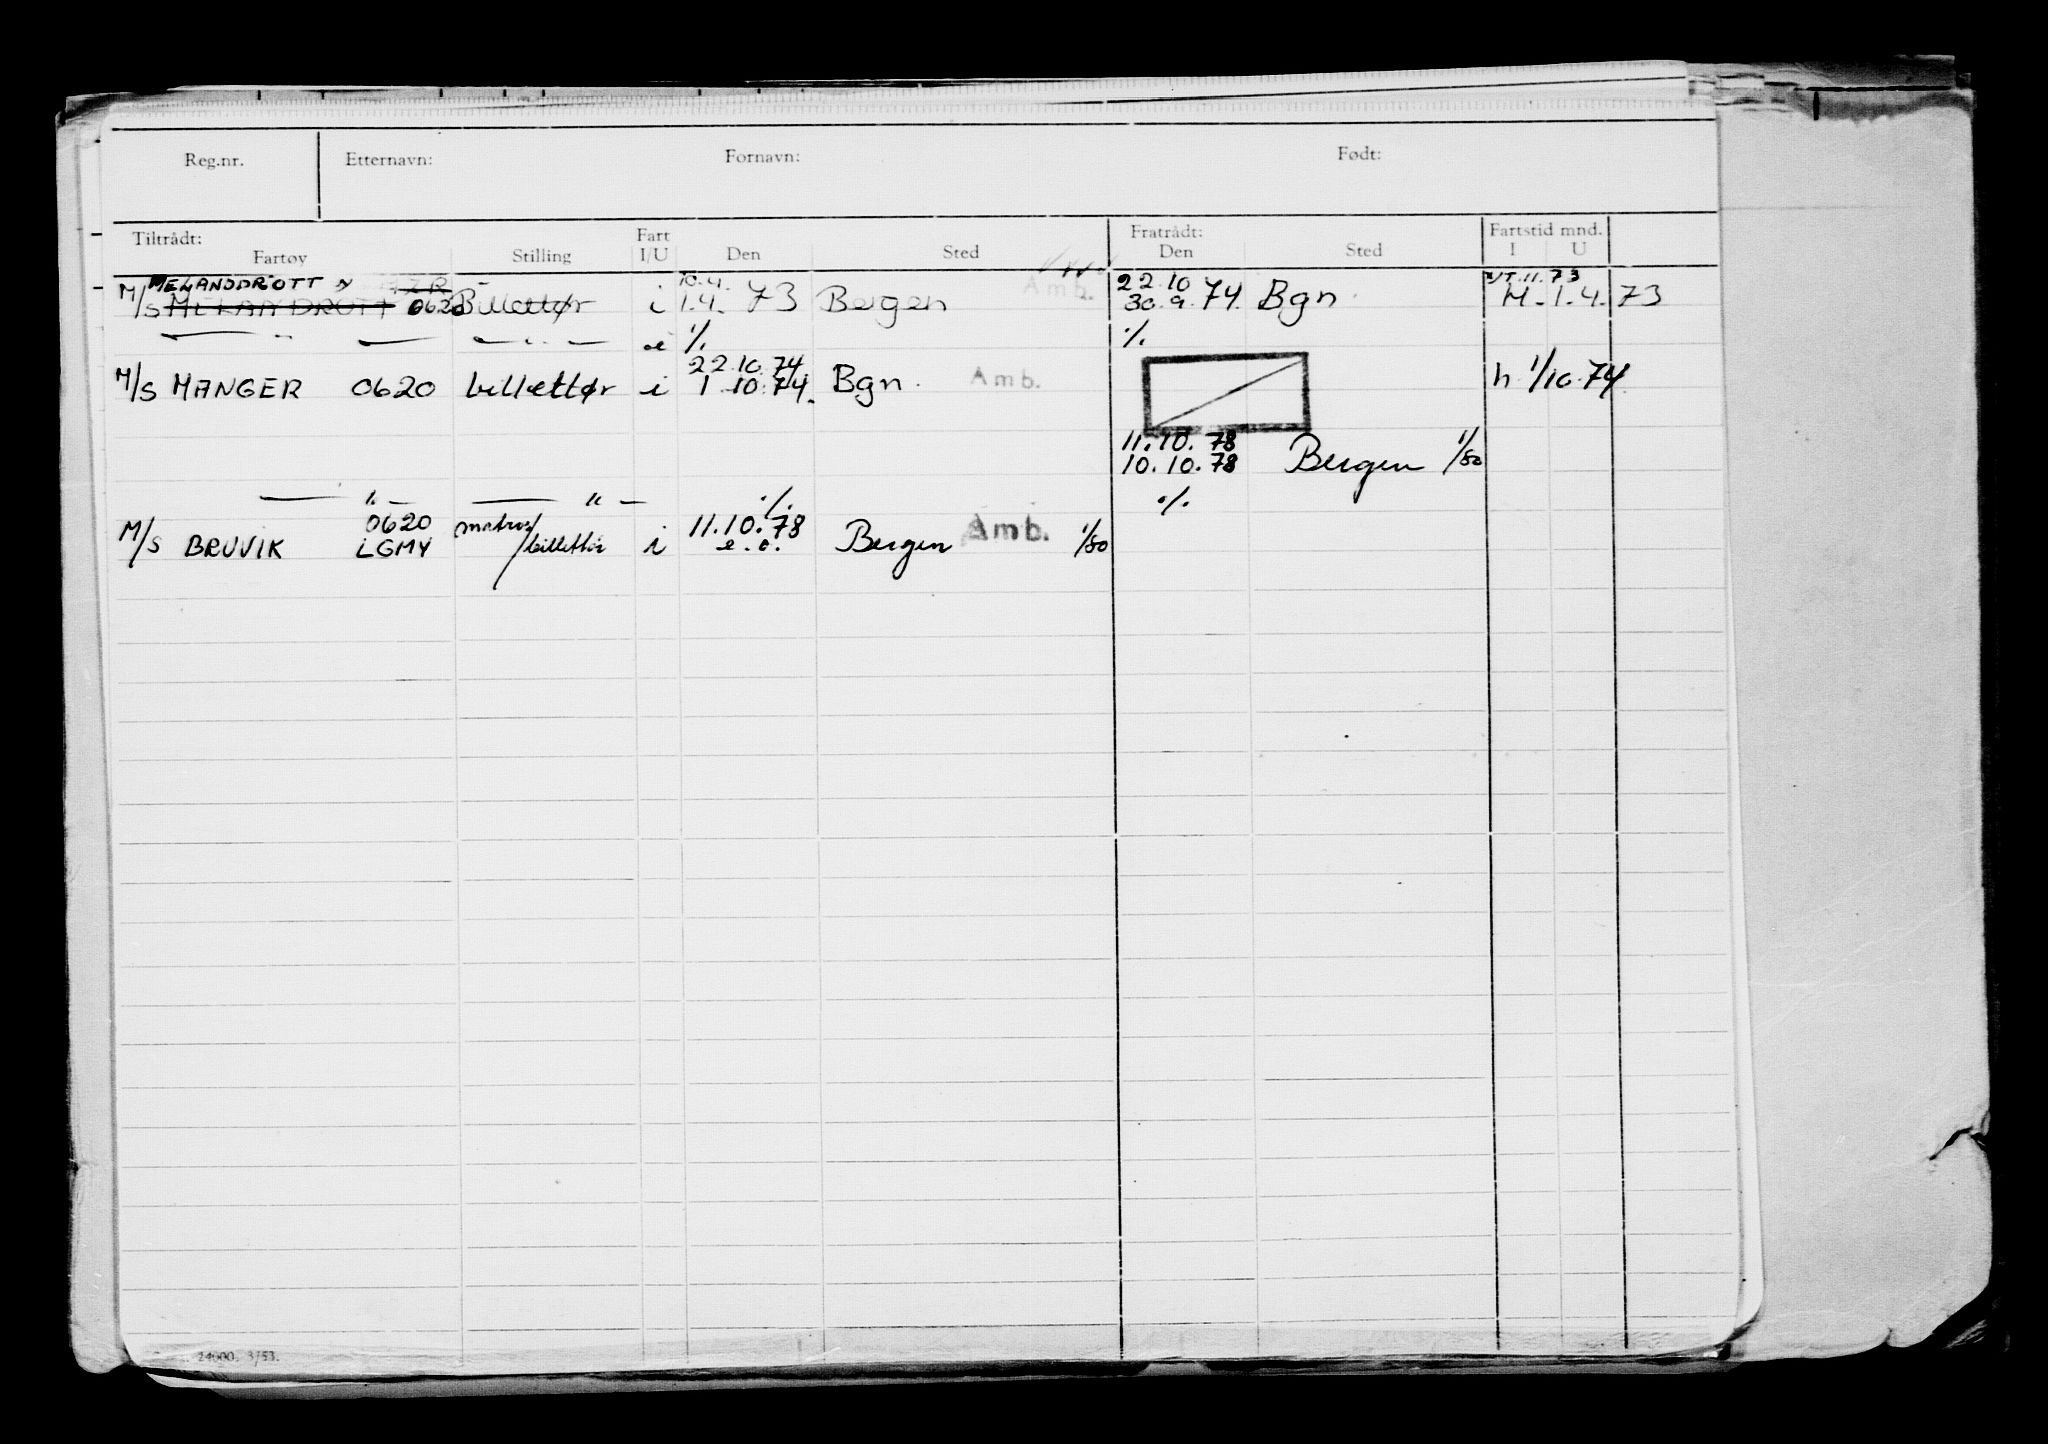 Reg.nr. Etternavn: Fornavn: Født:
Tiltrådt: Fart Fratrådt: Fartstid mnd.
Fartøy Stilling I/U Den Sted Den Sted I U
MELANDDROTT 10.4. 22.10 11.73
M/S MELANDDROTT 0620 Billettør i 1.4. 73 Bergen Amb. 30.9.74. Bgn H-1.4.73
— " — — — " — ./. ./.
22.10.74
M/S MANGER 0620 billettør i 1.10.74. Bgn. Amb. h. 1/10.74
11.10.78
10.10.78 Bergen 1/80
— " — — " — ./. ./.
0620 matros 11.10.78
M/S BRUVIK LGMY /billettør i e.o. Bergen Amb. 1/80
24000. 3/53.